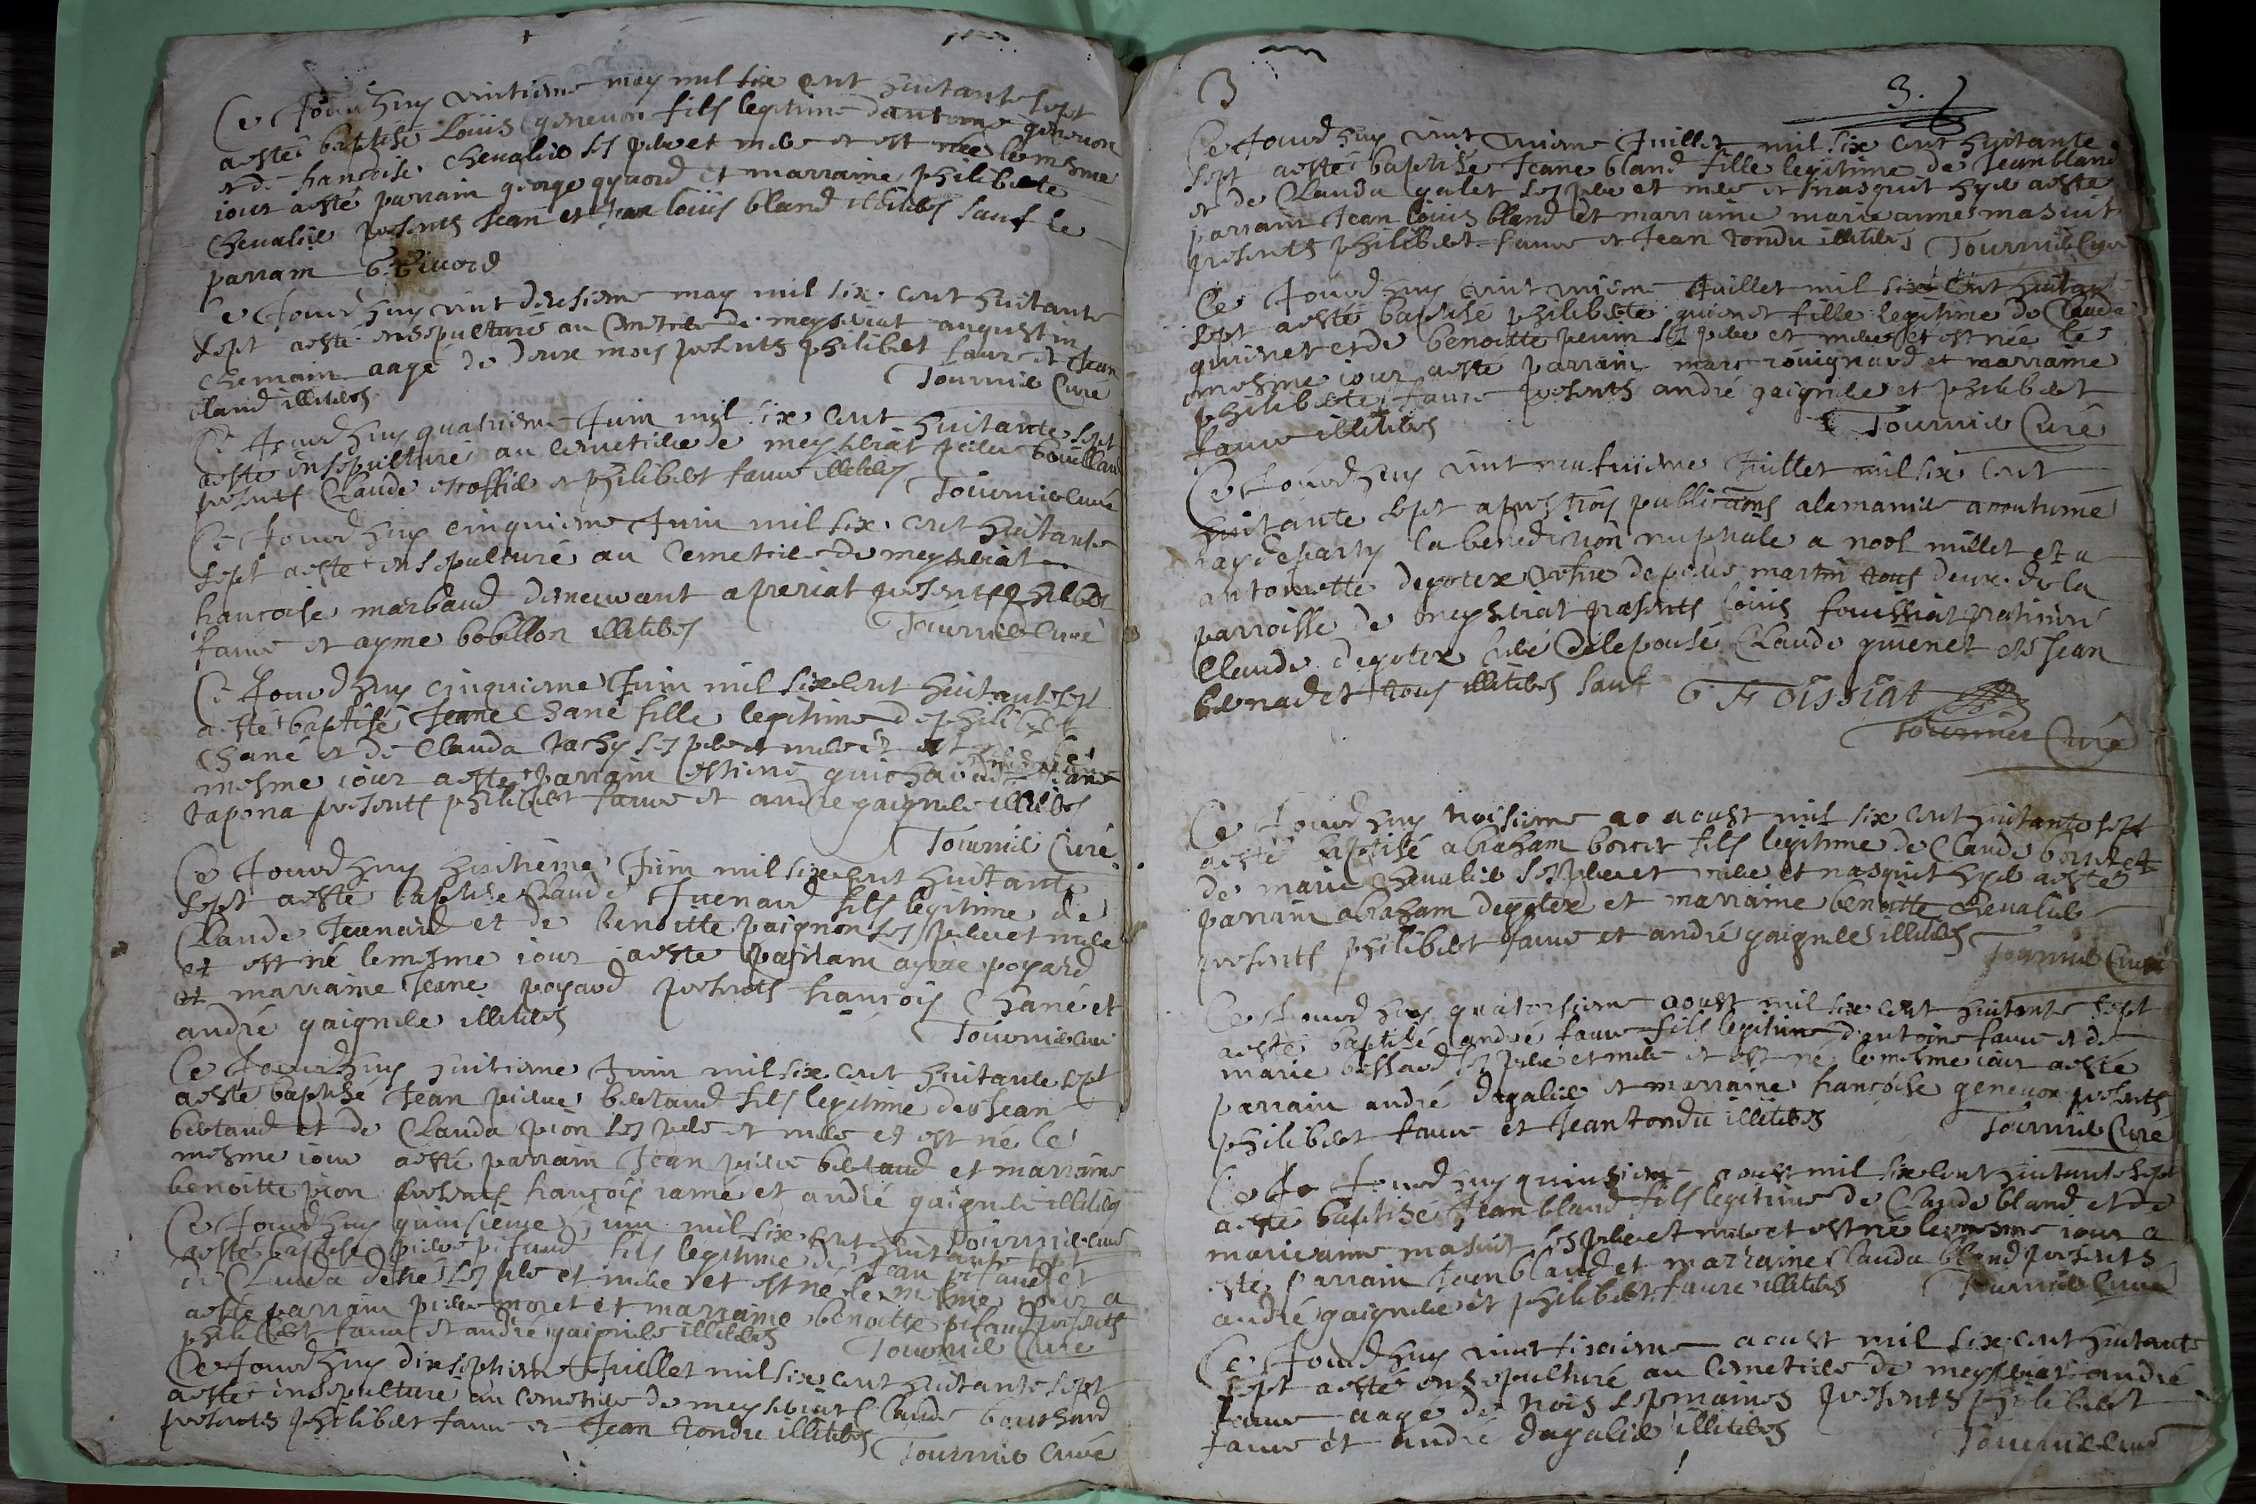 Ce Jourdhuy vintiesme may mil six cent huitante sept
aesté baptisé Loüis genevon fils legitime dantoine genevon
et de francoise Chevalier ses pere et mere et est née le mesme
iour aesté parrain george gyvord et marraine philiberte
Chevalier presents Jean et Jean loüis bland illiterés sauf le
parrain G. Givord
Ce Jourdhuy vint deusiesme may mil six cent huitante
sept aesté ensepulturé au Cimetiere de meyseriat augustin
chemain aagé de deux mois presents philibert faure et Jean
bland illiterés Tournier Curé
Ce Jourdhuy quatriesme Juin mil six cent huitante sept
aesté ensepulturé au cemetiere de meyseriat
presents Claude escoffier et philibert faure illiterés Tournier curé
Ce Jourdhuy cinquiesme Juin mil six cent huitante
sept aesté ensepulturé au Cemetiere de meyseriat
francoise marbaud demeurant a preriat presents philibert
faure et ayme bobillon illiterés Tournier Curé
Ce Jourdhuy cinquiesme Juin mil six cent huitante sept
aesté baptisé Jeane Chané fille legitime de philibert
Chané et de Clauda tachy ses pere et mere et est née le
mesme iour aesté parrain estiene guichard Jeane
tapona presents philibert faure et andre gaignere illiterés
Tournier Curé
Ce Jourdhuy huitieme Juin mil six cent huitante
sept aesté baptisé Claude Juenard fils legitime de
Claude Juenard et de benoitte paignon ses pere et mere
et est né le mesme iour aesté parrain ayme poyard
et marraine Jeane poyard presents francois Chané et
andré gaignere illiterés Tournier curé
Ce Jourdhuy huitiesme Juin mil six cent huitante sept
aesté baptisé Jean pierre bertaud fils legitime de Jean
bertaud et de Clauda pion ses pere et mere et est né le
mesme iour aesté parrain Jean pierre bertaud et marraine
benoitte pion presents françois ramé et andré gaignere illiterés
Tournier curé
Ce Jourdhuy quinsieme Juin mil six cent huitante sept
aesté baptisé pierre pifaud fils legitime de Jean pifaud et
de Clauda ses pere et mere et est né le mesme iour a
aesté parrain pierre moret et marraine benoitte pifaud presents
philibert faure et andré gaignere illiterés Tournier Curé
Ce Jourdhuy dixseptiesme Juillet mil six cent huitante sept
aesté ensepulturé au cemetiere de meyseriat Claude bouchard
presents philibert faure et Jean tondu illiterés
Tournier Curé
3
3.
Ce Jourdhuy vint uniesme Juillet mil six cent huitante
sept aesté baptisée Jeane bland fille legitime de Jean bland
et de Clauda galet ses pere et mere et nasquit hyer aesté
parrain Jean loüis bland et marraine marie anne masuit
presents philibert faure et Jean tondu illiterés Tournier Curé
Ce Jourdhuy vint uniesme Juillet mil six cent huitante
sept aesté baptisé philiberte guienet fille legitime de Claude
guienet et de benoitte perrin ses pere et mere et est née le
mesme iour aesté parrain marc rouignard et marraine
philiberte faure presents andré gaignere et philibert
faure illiterés Tournier Curé
Ce Jourdhuy vint neufuiesme Juillet mil six cent
huitante sept apres trois publications alamaniere acoutumé
iay departy la benediction nuptiale a noel millet et a
antoinette degoter vefue de pierre martin tous deux de la
parroisse de meyseriat presents loüis foissiat praticien
Claude degoter de lepousé Claude guienet et Jean
bernadet tous illiterés sauf Foissiat
Tournier Curé
Ce Jourdhuy troisiesme aoust mil six cent huitante sept
aesté baptisé abraham borcet fils legitime de Claude borcet et
de marie Chevalier ses pere et mere et nasquit hyer aesté
parrain abraham degoter et marraine benoitte Chevalier
presents philibert faure et andré gaignere illiterés Tournier Curé
Ce Jourdhuy quatorsiesme aoust mil six cent huitante sept
aesté baptisé andré faure fils legitime d'antoine faure et de
marie bessard ses pere et mere et est né le mesme iour aesté
parrain andré dagalier et marraine françoise genevon presents
philibert faure et Jean tondu illiterés Tournier Curé
Ce Jourdhuy quinsiesme aoust mil six cent huitante sept
aesté baptisé Jean bland fils legitime de Claude bland et de
marie anne masuit ses pere et mere et est né le mesme iour a
esté parrain Jean bland et marraine Clauda bland presents
andré gaignere et philibert faure illiterés Tournier Curé
Ce Jourdhuy vint sixiesme aoust mil six cent huitante
sept aesté ensepulturé au Cemetiere de meyseriat andré
faure aagé de trois sepmaines presents philibert
faure et andré dagalier illiterés Tournier Curé